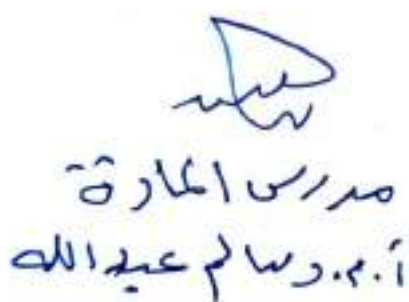 مدرس المادة
أ.م. وسام عبدالله